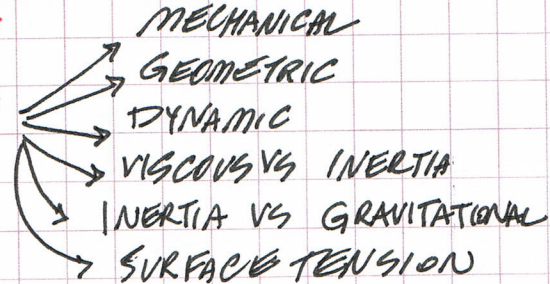 MECHANICAL
GEOMETRIC
DYNAMIC
VISCOUS VS INERTIA
INERTIA VS GRAVITATIONAL
SURFACE TENSION